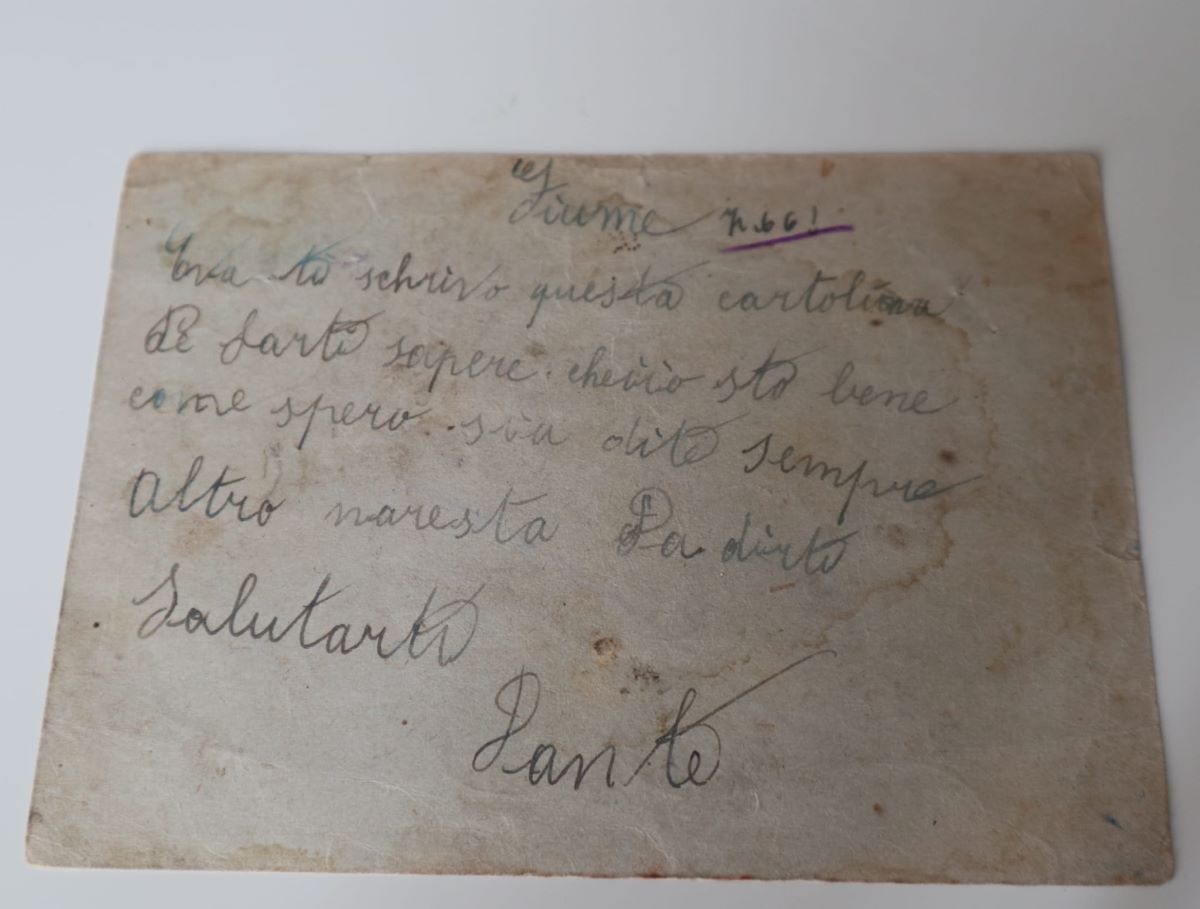 Fiume n.66!
Eva ti schrivo questa cartolina
De farti sapere cheiio sto bene
come spero sia dite sempre
Altro naresta Da dirti
Salutarti
Dante